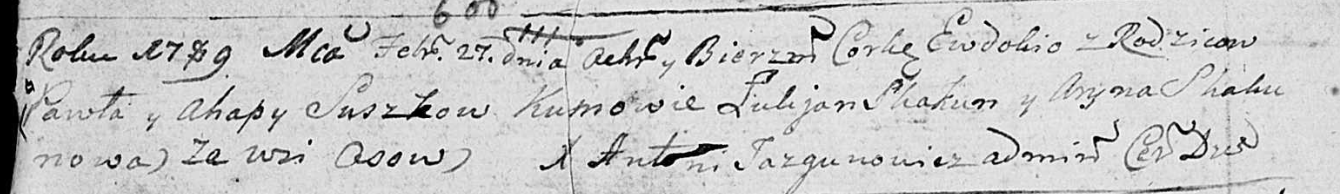 600
Roku 1789 Mca Febr. 27. dnia ochr y Bierzm Corkę Ewdokio z Rodzicow
Pawła y Ahapy Suszkow Kumowie Łukjan Skakun y Aryna Skaku
nowa) ze wsi Osow) X Antoni Jazgunowicz admin Cer Dre